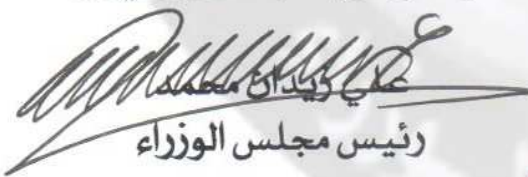 علي زيدان محمد
رئيس مجلس الوزراء